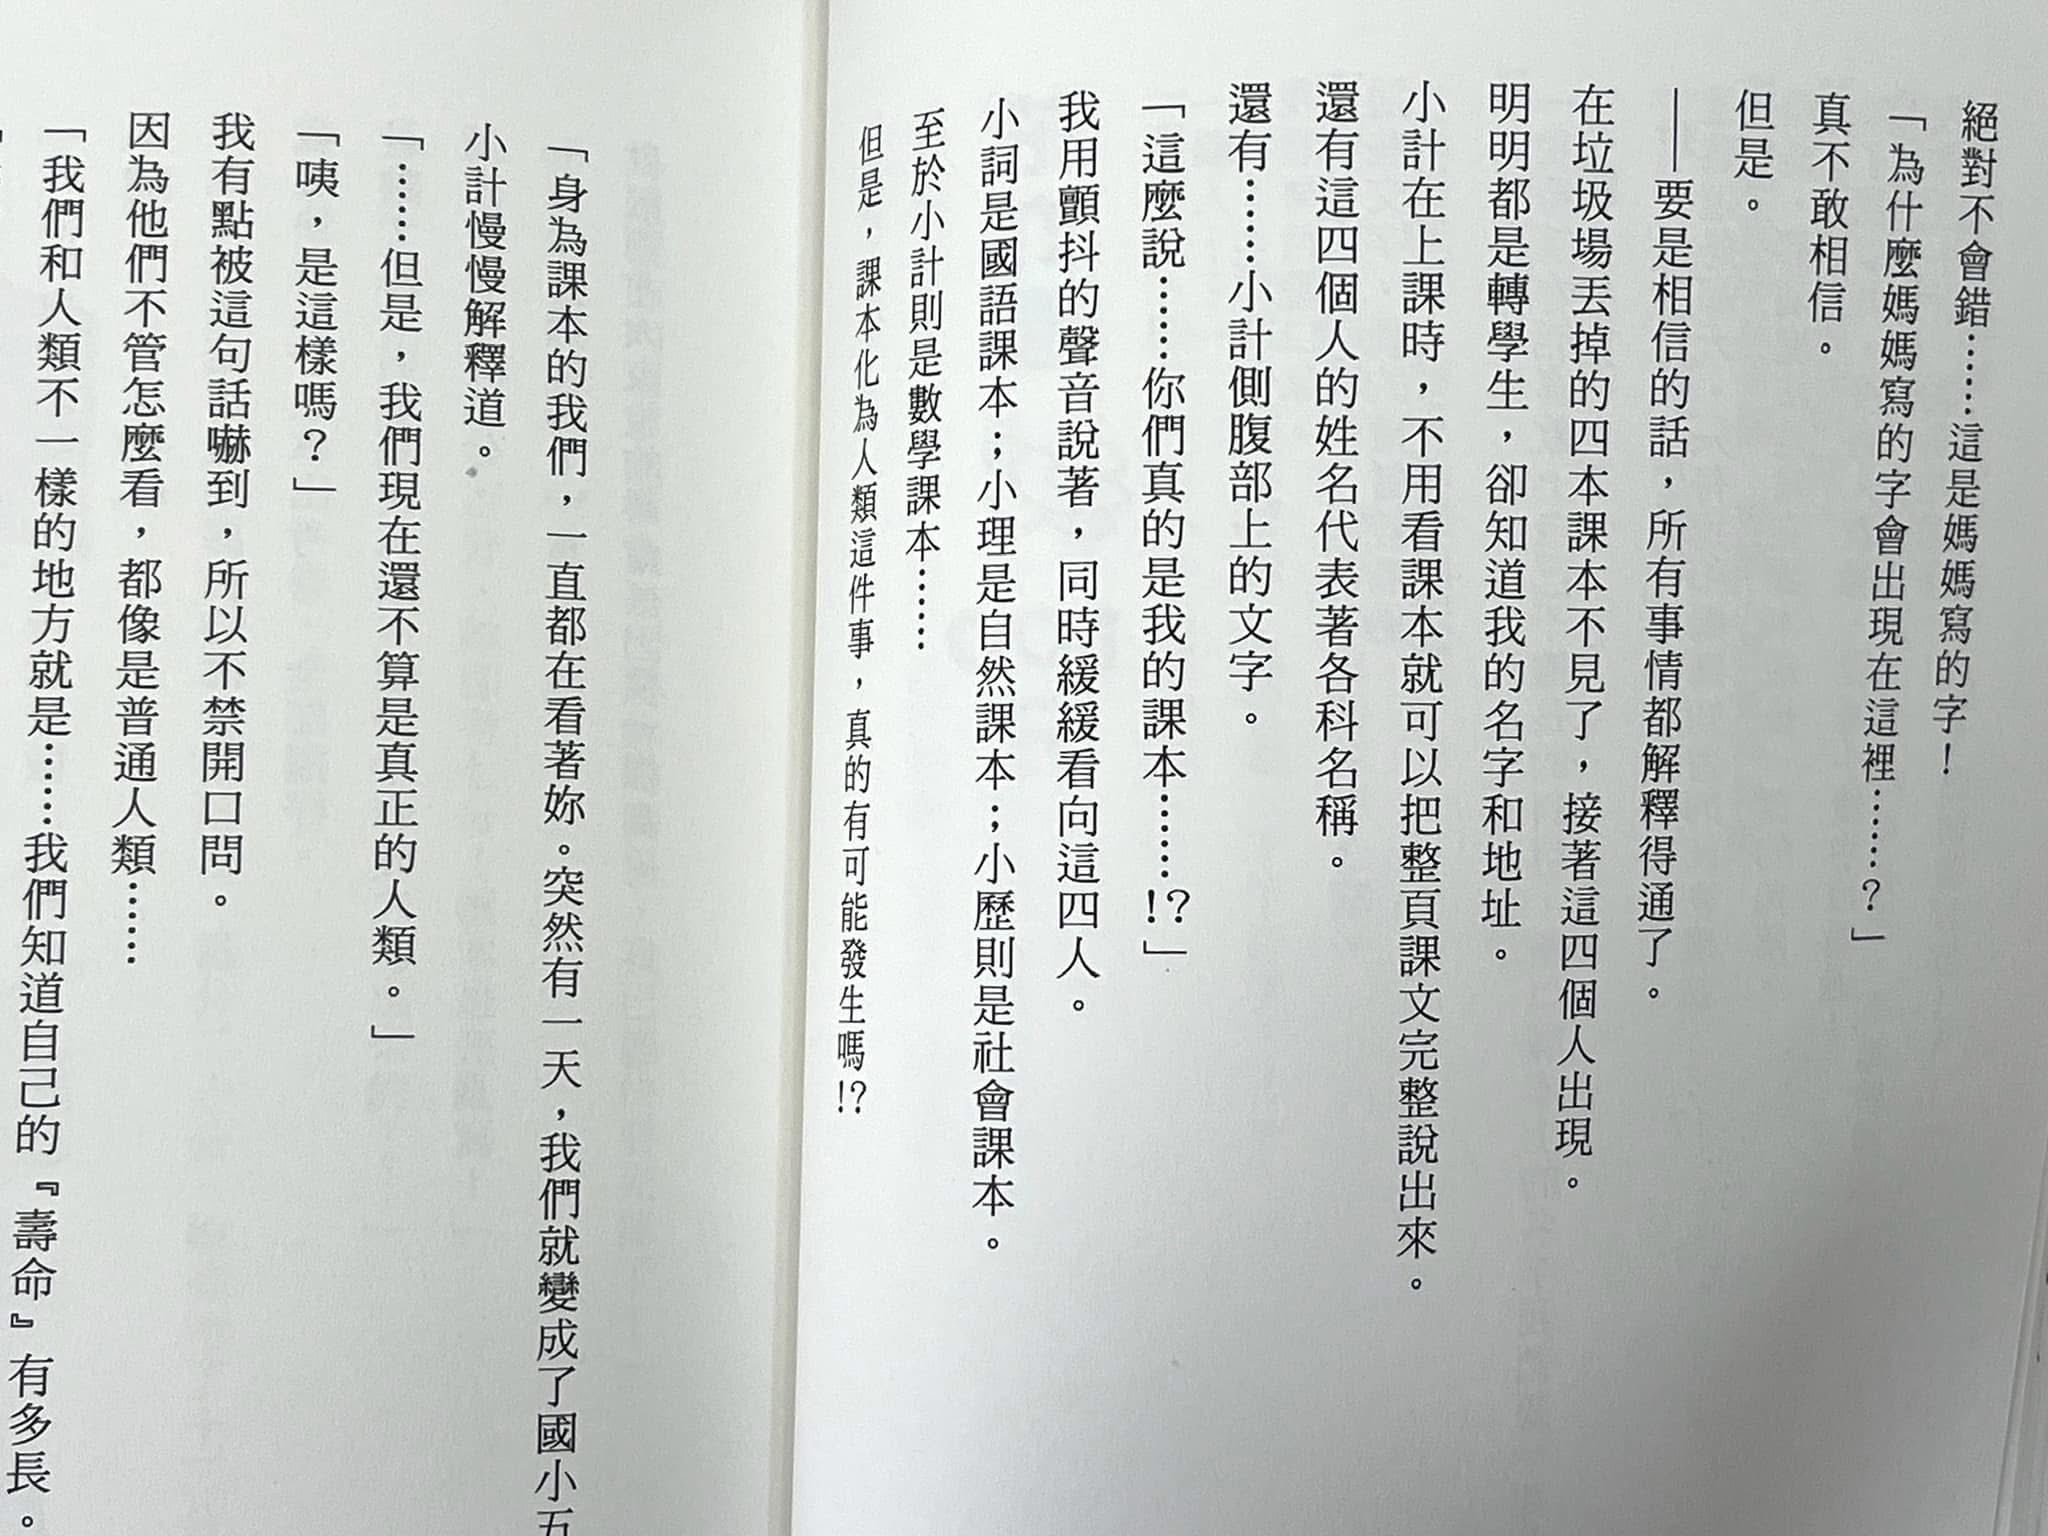 絕對不會錯……這是媽媽寫的字！
「為什麼媽媽寫的字會出現在這裡……？」
真不敢相信。
但是。
——要是相信的話，所有事情都解釋得通了。
在垃圾場丟掉的四本課本不見了，接著這四個人出現。
明明都是轉學生，卻知道我的名字和地址。
小計在上課時，不用看課本就可以把整頁課文完整說出來。
還有這四個人的姓名代表著各科名稱。
還有……小計側腹部上的文字。
「這麼說……你們真的是我的課本……!?」
我用顫抖的聲音說著，同時緩緩看向這四人。
小詞是國語課本；小理是自然課本；小歷則是社會課本。
至於小計則是數學課本……
但是，課本化為人類這件事，真的有可能發生嗎!?
「身為課本的我們，一直都在看著妳。突然有一天，我們就變成了國小五
小計慢慢解釋道。
「……但是，我們現在還不算是真正的人類。」
「咦，是這樣嗎？」
我有點被這句話嚇到，所以不禁開口問。
因為他們不管怎麼看，都像是普通人類……
「我們和人類不一樣的地方就是……我們知道自己的『壽命』有多長。